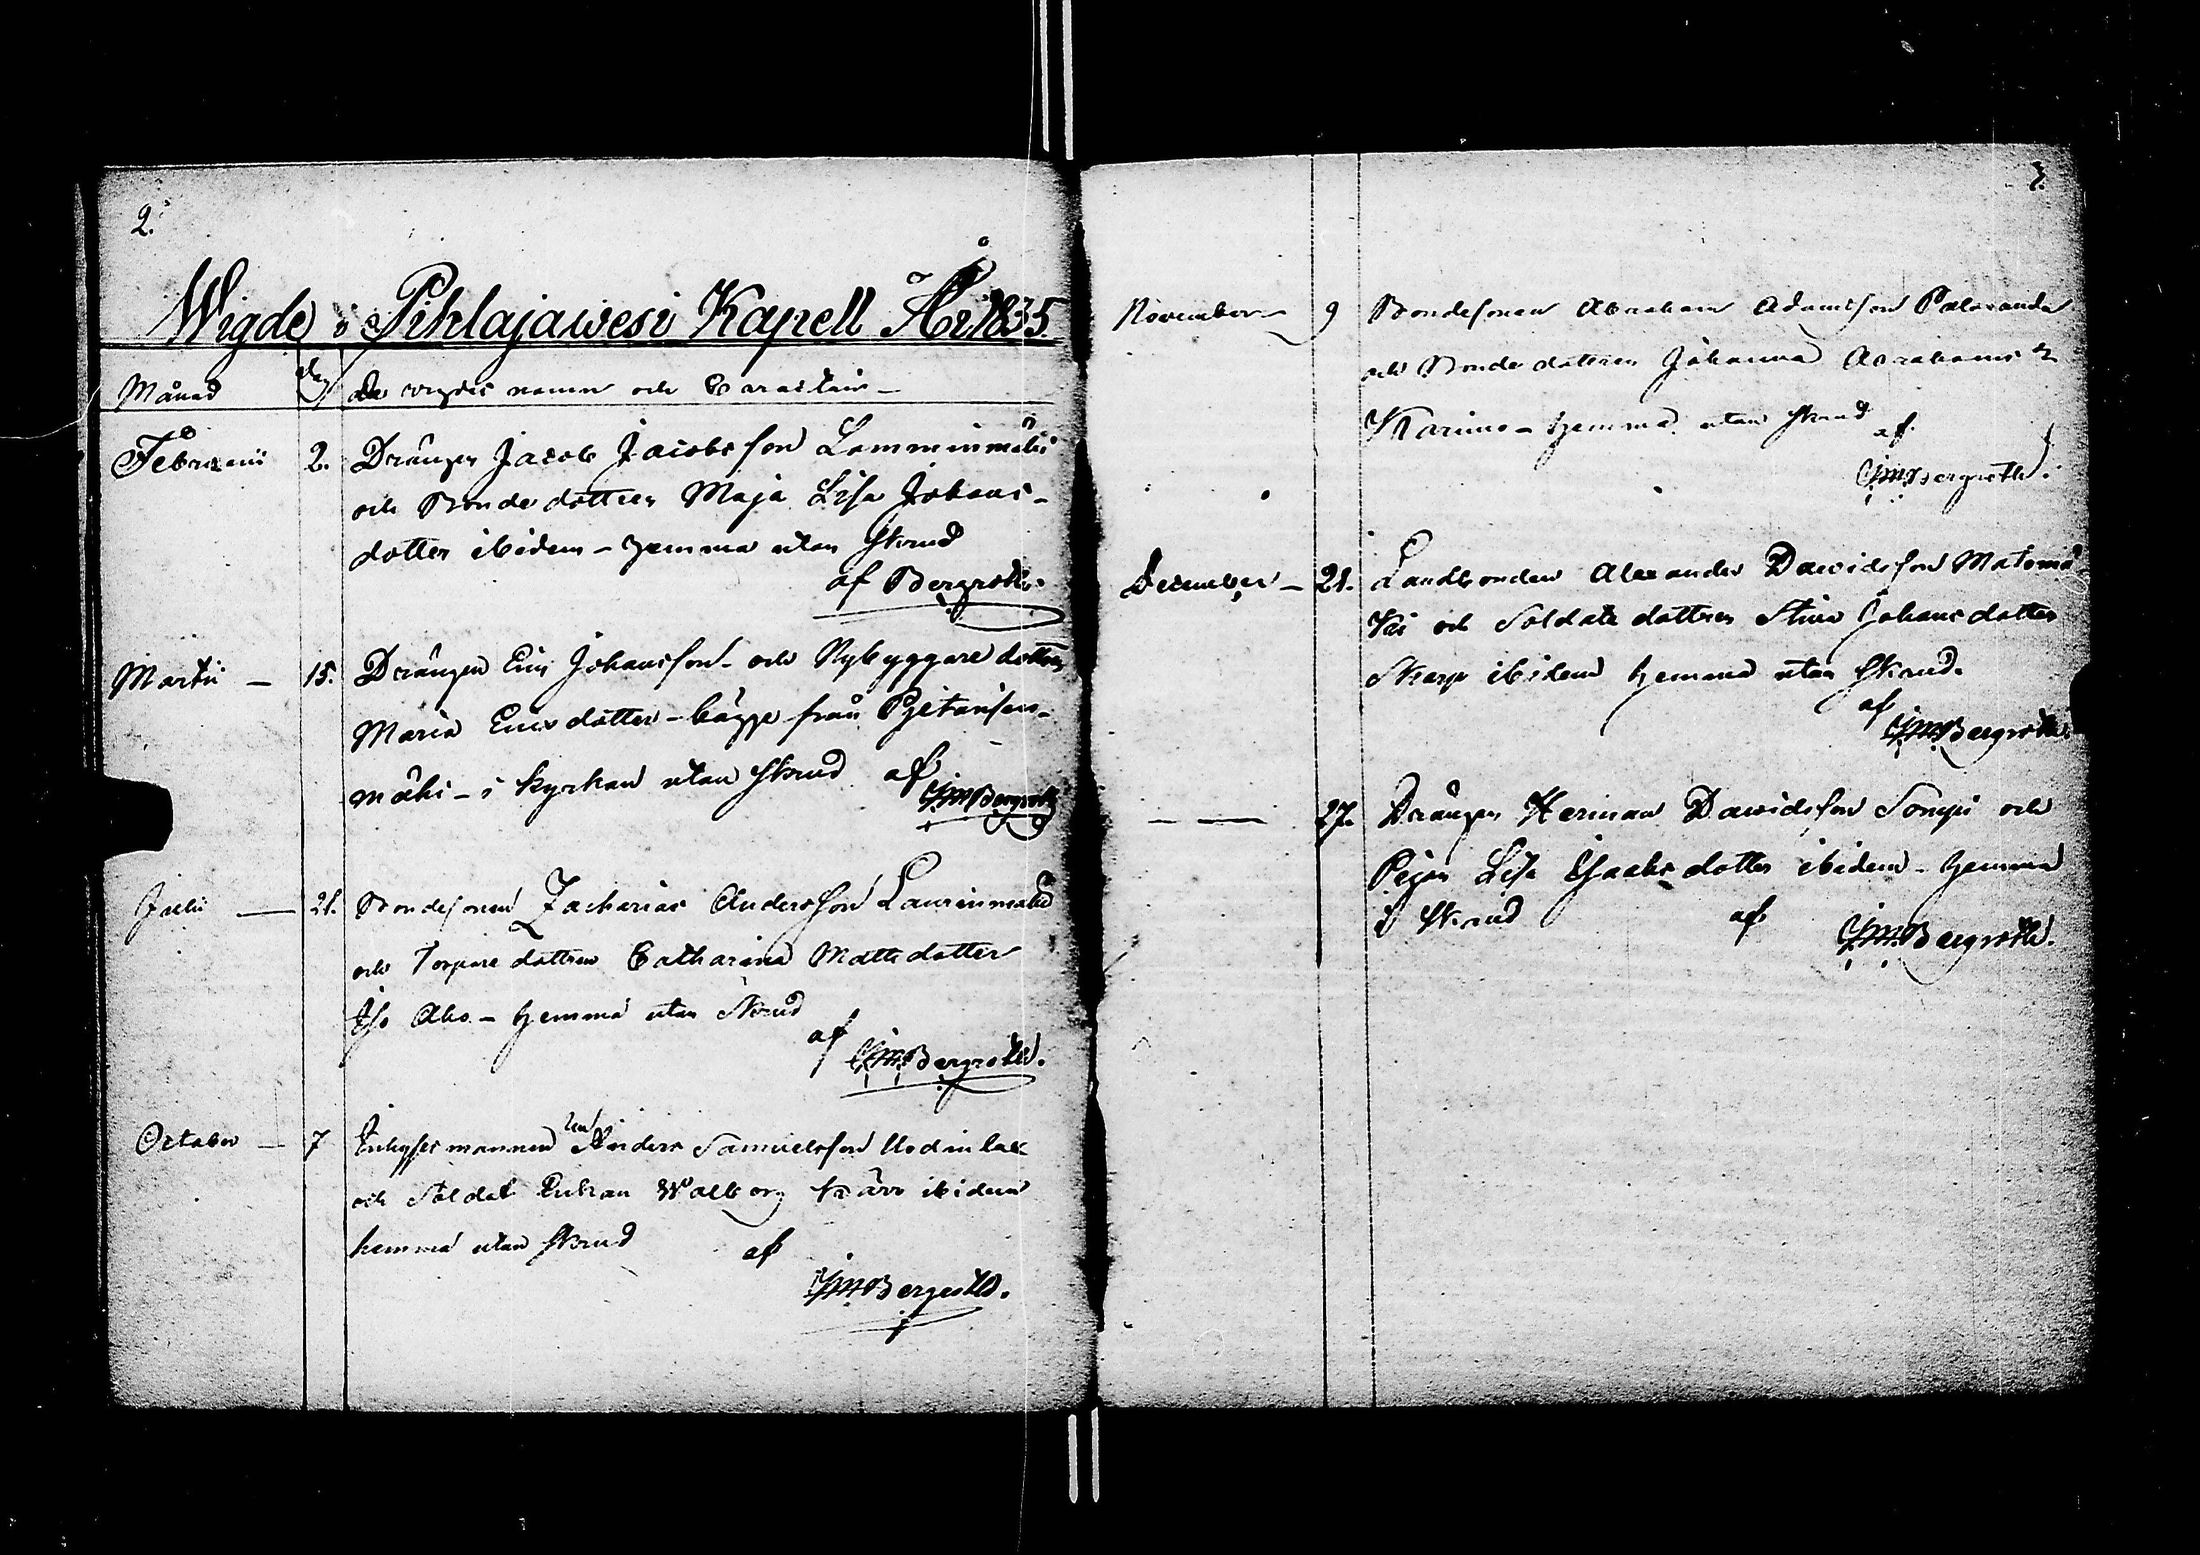 2.
Wigde i Pihlajawesi Kapell År 1835.
Månad dag De wigdes namn och Caracteir
Februarii 2. Drängen Jacob Jacobsson Lamminmäki
och Bondedottren Maja Lisa Johans-
dotter ibidem - hemma utan skrud
af Bergroth.
Martii - 15. Drängen Eric Johansson - och Nybyggare dottren
Maria Ericsdotter - bägge från
mäki - i kyrkan utan skrud af
Bergroth
Julii - 21. Bondesonen Zacharias Andersson Laurinmäki
och Torpare dottren Catharina Mattsdotter
Iso Aho - hemma utan Skrud
af
Bergroth.
October - 7 Inhyses mannen Anders Samuelsson
och Soldat Enkan Walborg ibidem
hemma utan skrud af
Bergroth.
3.
November - 9 Bondesonen Abraham Adamsson
och Bonde dottren Johanna Abrahams dr
- hemma utan skrud
af
Bergroth.
December - 21. Landbonden Alexander Dawidsson Matomä
ki och Soldats dottren Stina Johansdotter
Skarp ibidem hemma utan skrud.
af
Bergroth.
- - 27. Drängen Herman Dawidsson Sompi och
Pigan Lisa Isaksdotter ibidem - hemma
i skrud af
Bergroth.